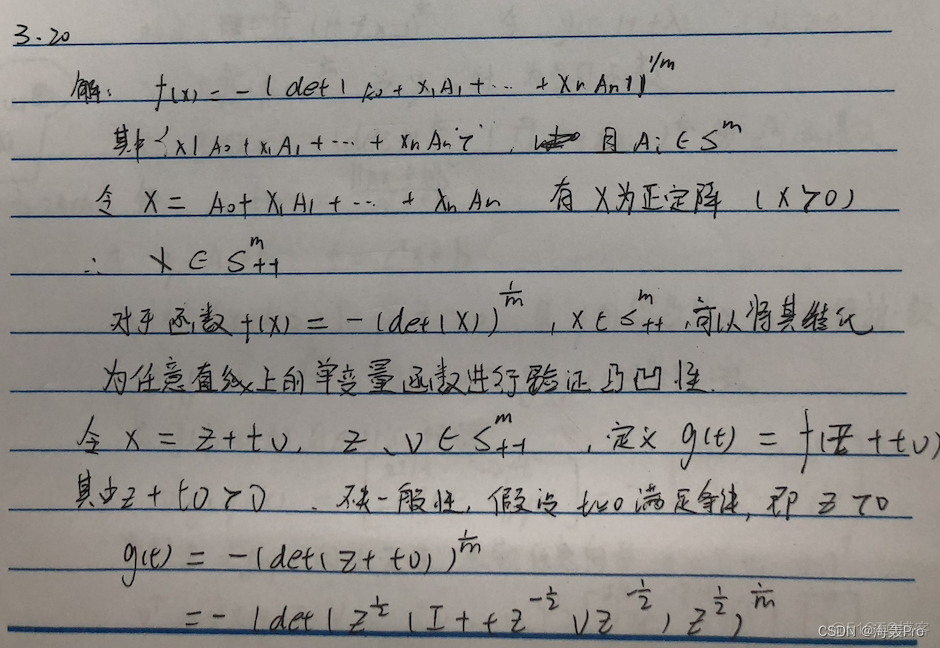 3.20
解: f(x) = -(det(A₀ + x₁A₁ + ⋯ + xₙAₙ))^{1/m}
其中{x|A₀ + x₁A₁ + ⋯ + xₙAₙ≻0}, 且 Aᵢ ∈ S^m
令 X = A₀ + x₁A₁ + ⋯ + xₙAₙ 有 X为正定阵 (X≻0)
∴ X ∈ S^m_{++}
对于函数 f(X) = -(det(X))^{1/m}, X ∈ S^m_{++}, 可以将其转化
为任意直线上的单变量函数进行验证凸凹性.
令 X = Z + tV, Z、V ∈ S^m_{++}, 定义 g(t) = f(Z + tV)
其中Z + tV ≻ 0. 不失一般性, 假设 t=0 满足条件, 即 Z ≻ 0
g(t) = -(det(Z + tV))^{1/m}
= -(det(Z^{1/2}(I + tZ^{-1/2}VZ^{-1/2})Z^{1/2})^{1/m}
CSDN @海轰Pro